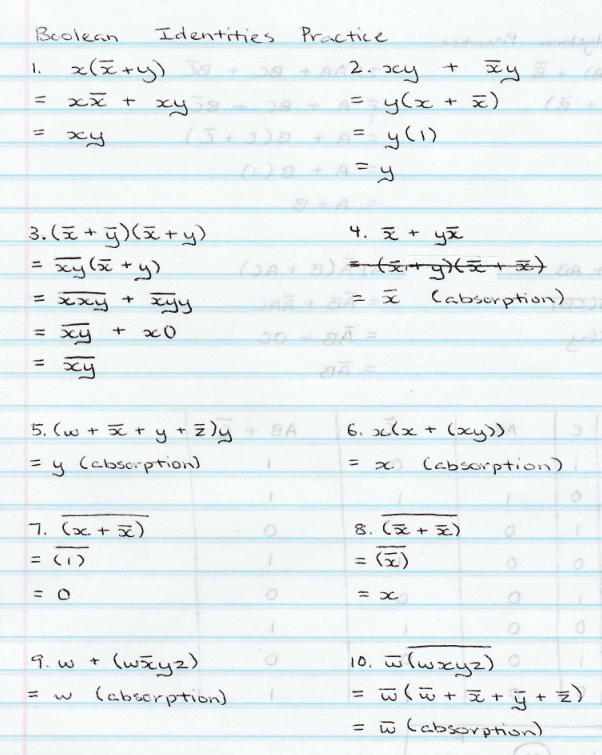 Boolean Identities Practice
1. x(x̅+y)
= xx̅ + xy
= xy
2. xy + x̅y
= y(x + x̅)
= y(1)
= y
3. (x̅ + y̅)(x̅ + y)
= x̅y̅(x̅ + y)
= x̅x̅y̅ + x̅y̅y
= x̅y̅ + x0
= x̅y̅
4. x̅ + yx̅
= (x̅+y)(x̅ + x̅)
= x̅ (absorption)
5. (w + x̅ + y + z̅)y
= y (absorption)
6. x(x + (xy))
= x (absorption)
7. (̅x̅ ̅+̅ ̅x̅)̅
= (̅1̅)̅
= 0
8. (̅x̅ ̅+̅ ̅x̅)̅
= (̅x̅)̅
= x
9. w + (wx̅yz)
= w (absorption)
10. w̅(̅w̅x̅y̅z̅)̅
= w̅(w̅ + x̅ + y̅ + z̅)
= w̅ (absorption)